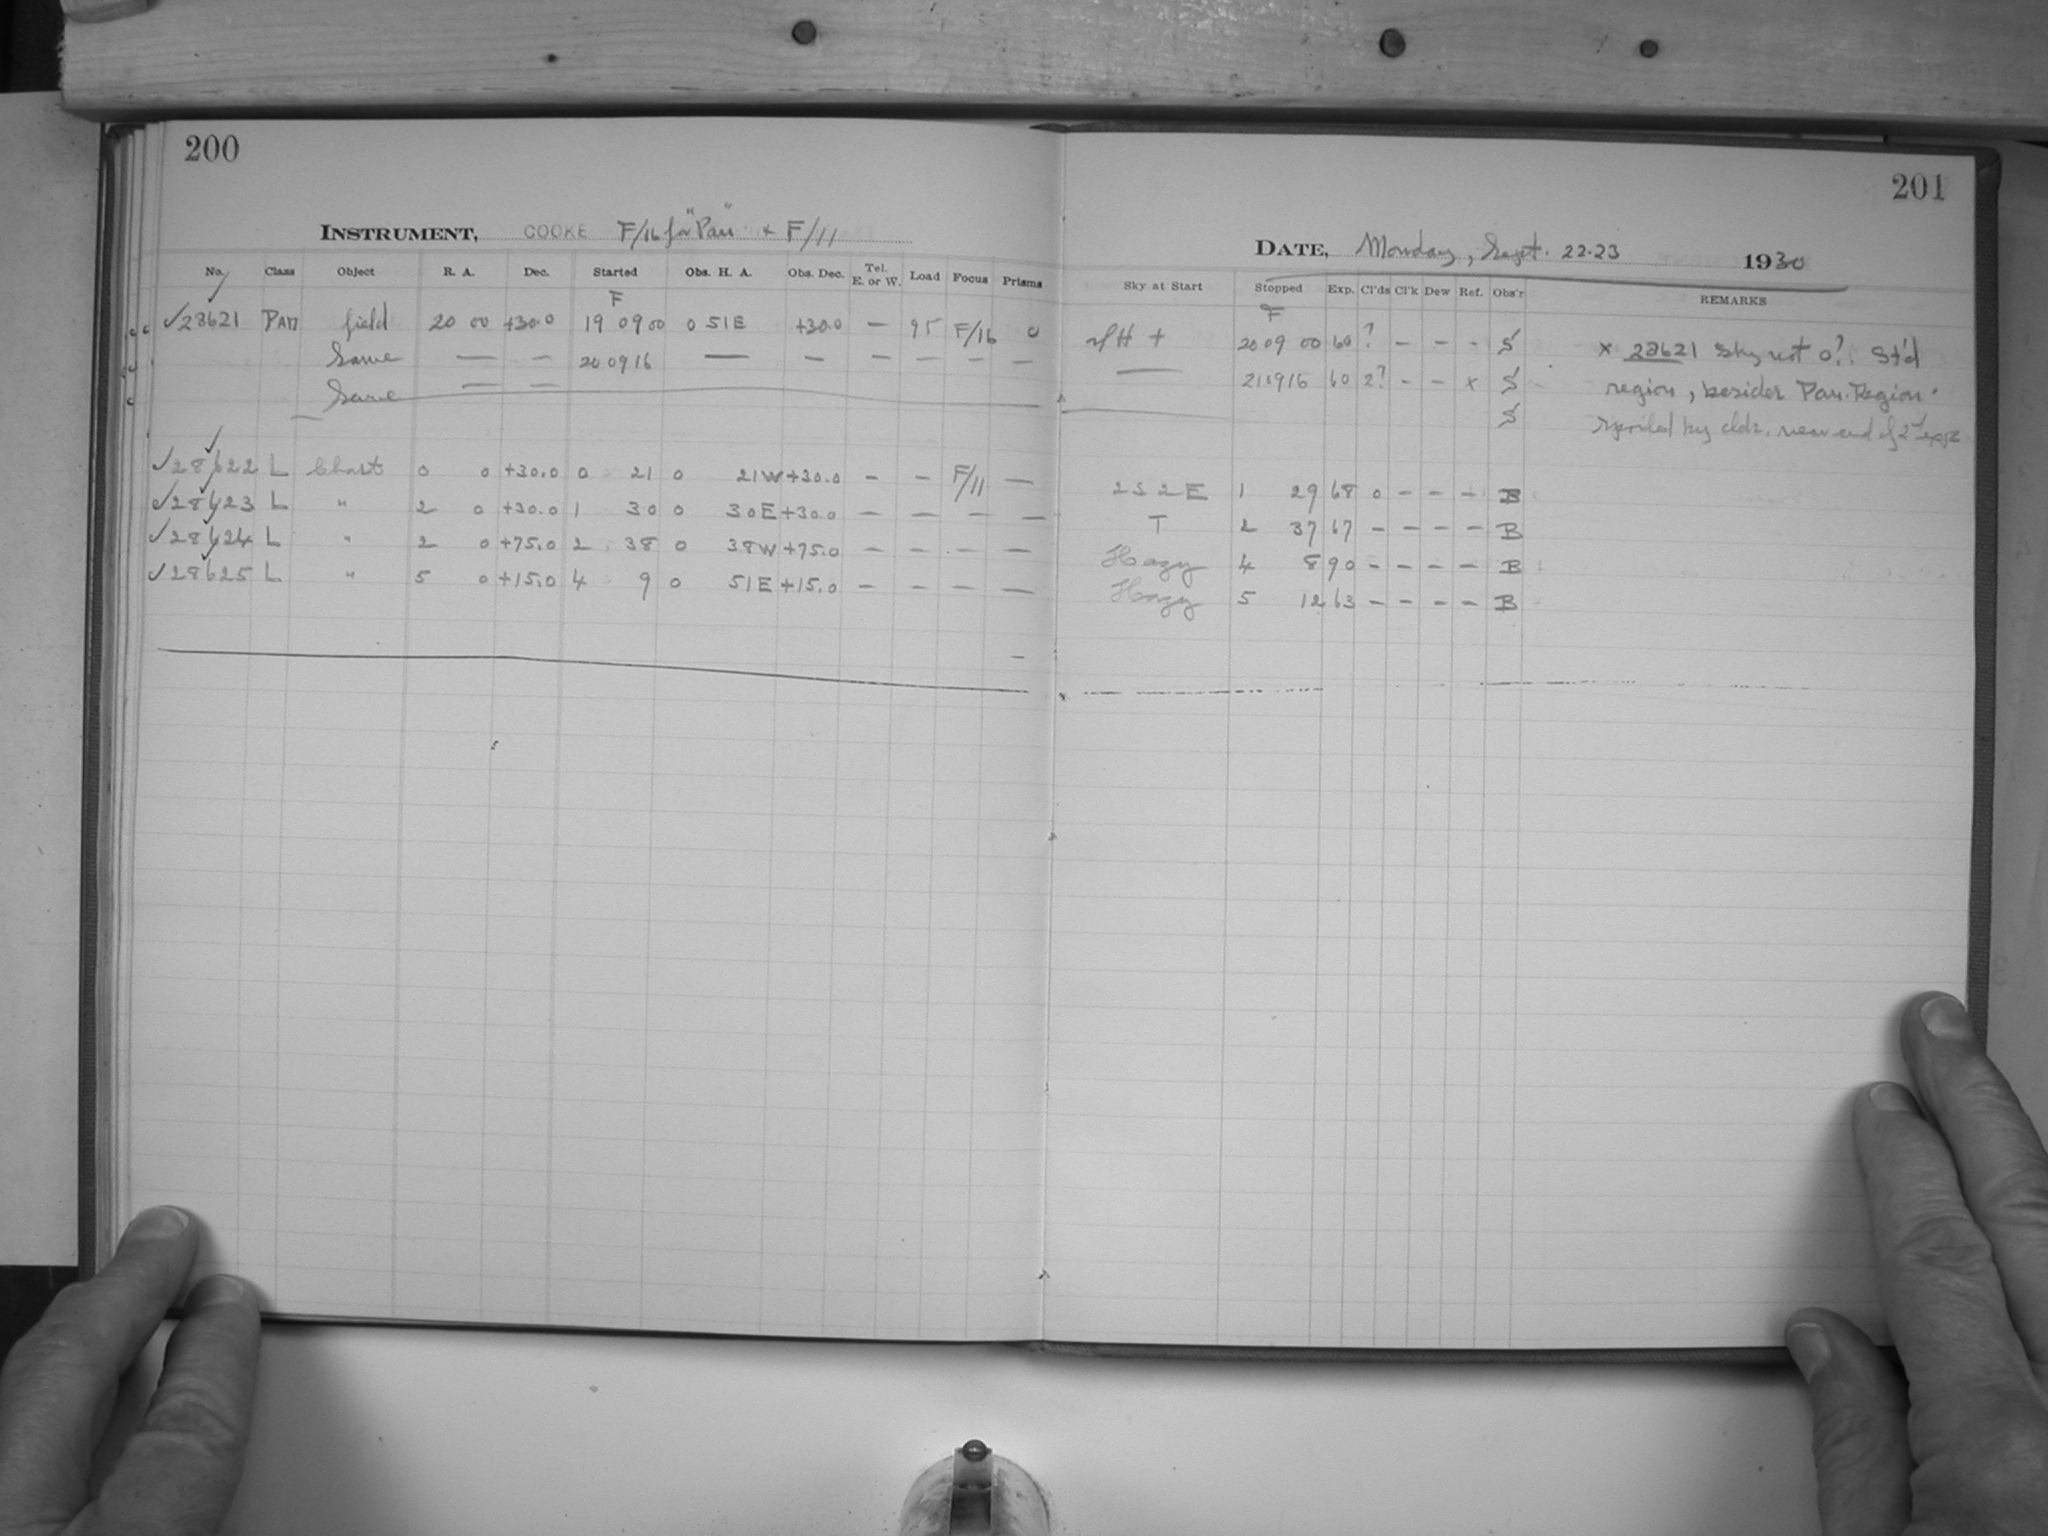 200
INSTRUMENT, COOKE F/16 for "Pan" & F/11
No. Class Object R. A. Dec. Started Obs. H. A. Obs. Dec. Tel. E. or W. Load Focus Prisms
F
✓28621 Pan field 20 00 +30.0 19 09 00 0 51E +30.0 — 95 F/16 0
Same — — 20 09 16 — — — — — —
Same — —
✓28622 L Chart 0 0 +30.0 0 21 0 21W +30.0 — — F/11 —
✓28623 L " 2 0 +30.0 1 30 0 30E +30.0 — — — —
✓28624 L " 2 0 +75.0 2 38 0 38W +75.0 — — — —
✓28625 L " 5 0 +15.0 4 9 0 51E +15.0 — — — —
201
DATE, Monday, Sept. 22-23 1930
Sky at Start Stopped Exp. Cl'ds Cl'k Dew Ref. Obs'r REMARKS
F
H + 20 09 00 60 ? - - - S x 28621 Sky not 0?. St'd
— 21 09 16 60 2? - - x S region, besides Pan. Region
S spoiled by clds. near end of 2d exp.
2S 2E 1 29 68 0 - - - B
T 2 37 67 - - - - B
Hazy 4 8 90 - - - - B
Hazy 5 12 63 - - - - B